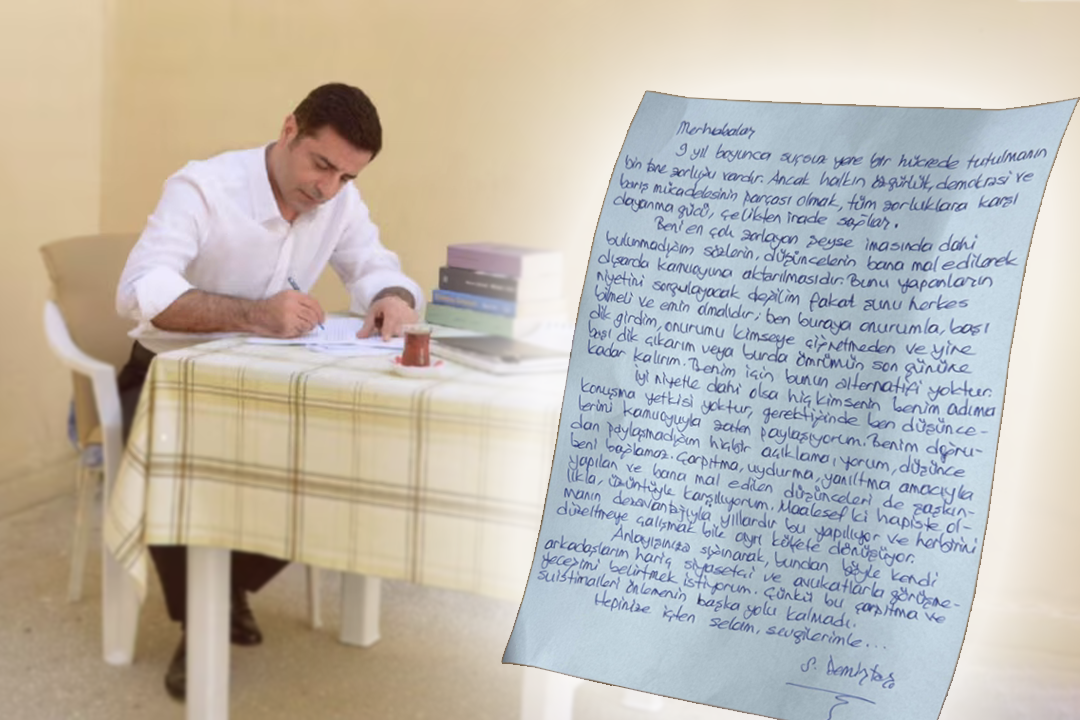 Merhabalar
9 yıl boyunca suçsuz yere bir hücrede tutulmanın
bin tane zorluğu vardır. Ancak halkın özgürlük, demokrasi ve
barış mücadelesinin parçası olmak, tüm zorluklara karşı
dayanma gücü, çelikten irade sağlar.
Beni en çok zorlayan şeyse imasında dahi
bulunmadığım sözlerin, düşüncelerin bana mal edilerek
dışarda kamuoyuna aktarılmasıdır. Bunu yapanların
niyetini sorgulayacak değilim fakat şunu herkes
bilmeli ve emin olmalıdır; ben buraya onurumla, başı
dik girdim, onurumu kimseye çiğnetmeden ve yine
başı dik çıkarım veya burda ömrümün son gününe
kadar kalırım. Benim için bunun alternatifi yoktur.
İyi niyetle dahi olsa hiç kimsenin benim adıma
konuşma yetkisi yoktur, gerektiğinde ben düşünce-
lerimi kamuoyuyla zaten paylaşıyorum. Benim doğru-
dan paylaşmadığım hiçbir açıklama, yorum, düşünce
beni bağlamaz. Çarpıtma, uydurma, yanıltma amacıyla
yapılan ve bana mal edilen düşünceleri de şaşkın-
lıkla, üzüntüyle karşılıyorum. Maalesef ki hapiste ol-
manın dezavantajıyla yıllardır bu yapılıyor ve herbirini
düzeltmeye çalışmak bile ayrı külfete dönüşüyor.
Anlayışınıza sığınarak, bundan böyle kendi
arkadaşlarım hariç siyasetçi ve avukatlarla görüşme-
yeceğimi belirtmek istiyorum. Çünkü bu çarpıtma ve
suistimalleri önlemenin başka yolu kalmadı.
Hepinize içten selam, sevgilerimle...
S. Demirtaş